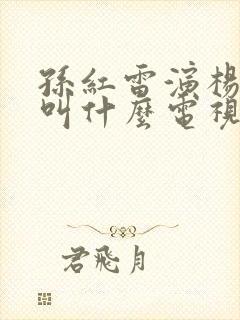 孫紅雷演楊
叫什麼電視
君飛月